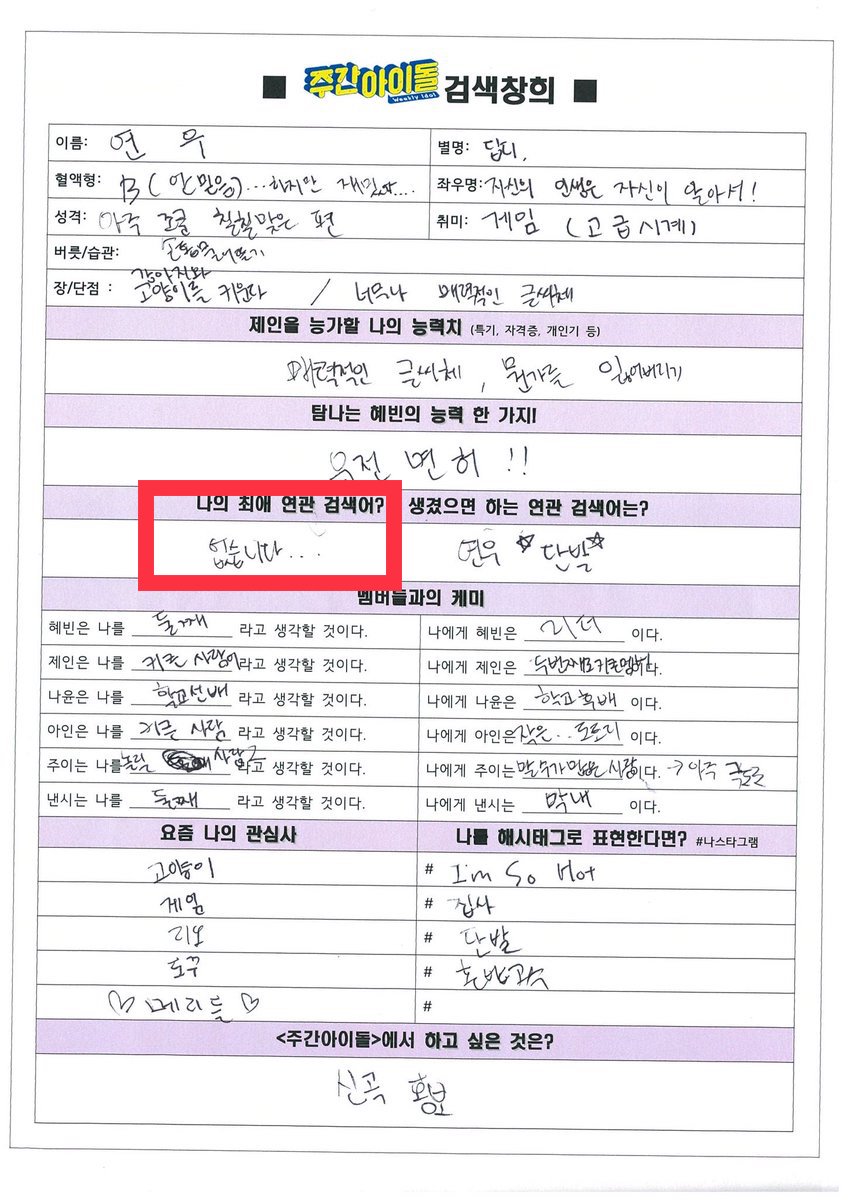 ■ 주간아이돌 Weekly Idol 검색창희 ■
이름: 연우 별명: 답디,
혈액형: B (안믿음)...하지만 재밌다.... 좌우명: 자신의 인생은 자신이 알아서!
성격: 아주 조금 칠칠맞은 편 취미: 게임 (고급시계)
버릇/습관: 손톱물어뜯기
장/단점 : 강아지와 고양이를 키운다 / 너무나 매력적인 글씨체
제인을 능가할 나의 능력치 (특기, 자격증, 개인기 등)
매력적인 글씨체, 뭔가를 잃어버리기
탐나는 혜빈의 능력 한 가지!
운전 면허 !!
나의 최애 연관 검색어? 생겼으면 하는 연관 검색어는?
없습니다... 연우 ☆단발☆
멤버들과의 케미
혜빈은 나를 둘째 라고 생각할 것이다. 나에게 혜빈은 리더 이다.
제인은 나를 키큰 사람이 라고 생각할 것이다. 나에게 제인은 두번째로키큰멤버 이다.
나윤은 나를 학교선배 라고 생각할 것이다. 나에게 나윤은 학교후배 이다.
아인은 나를 키큰 사람 라고 생각할 것이다. 나에게 아인은 작은.. 도토리 이다.
주이는 나를 놀릴 사람2 라고 생각할 것이다. 나에게 주이는 말수가 없는 사람 이다. → 아주
낸시는 나를 둘째 라고 생각할 것이다. 나에게 낸시는 막내 이다.
요즘 나의 관심사 나를 해시태그로 표현한다면? #나스타그램
고양이 # I'm So Hot
게임 # 집사
리오 # 단발
도꾸 # 흔바라기
♡ 메리들 ♡ #
<주간아이돌>에서 하고 싶은 것은?
신곡 홍보